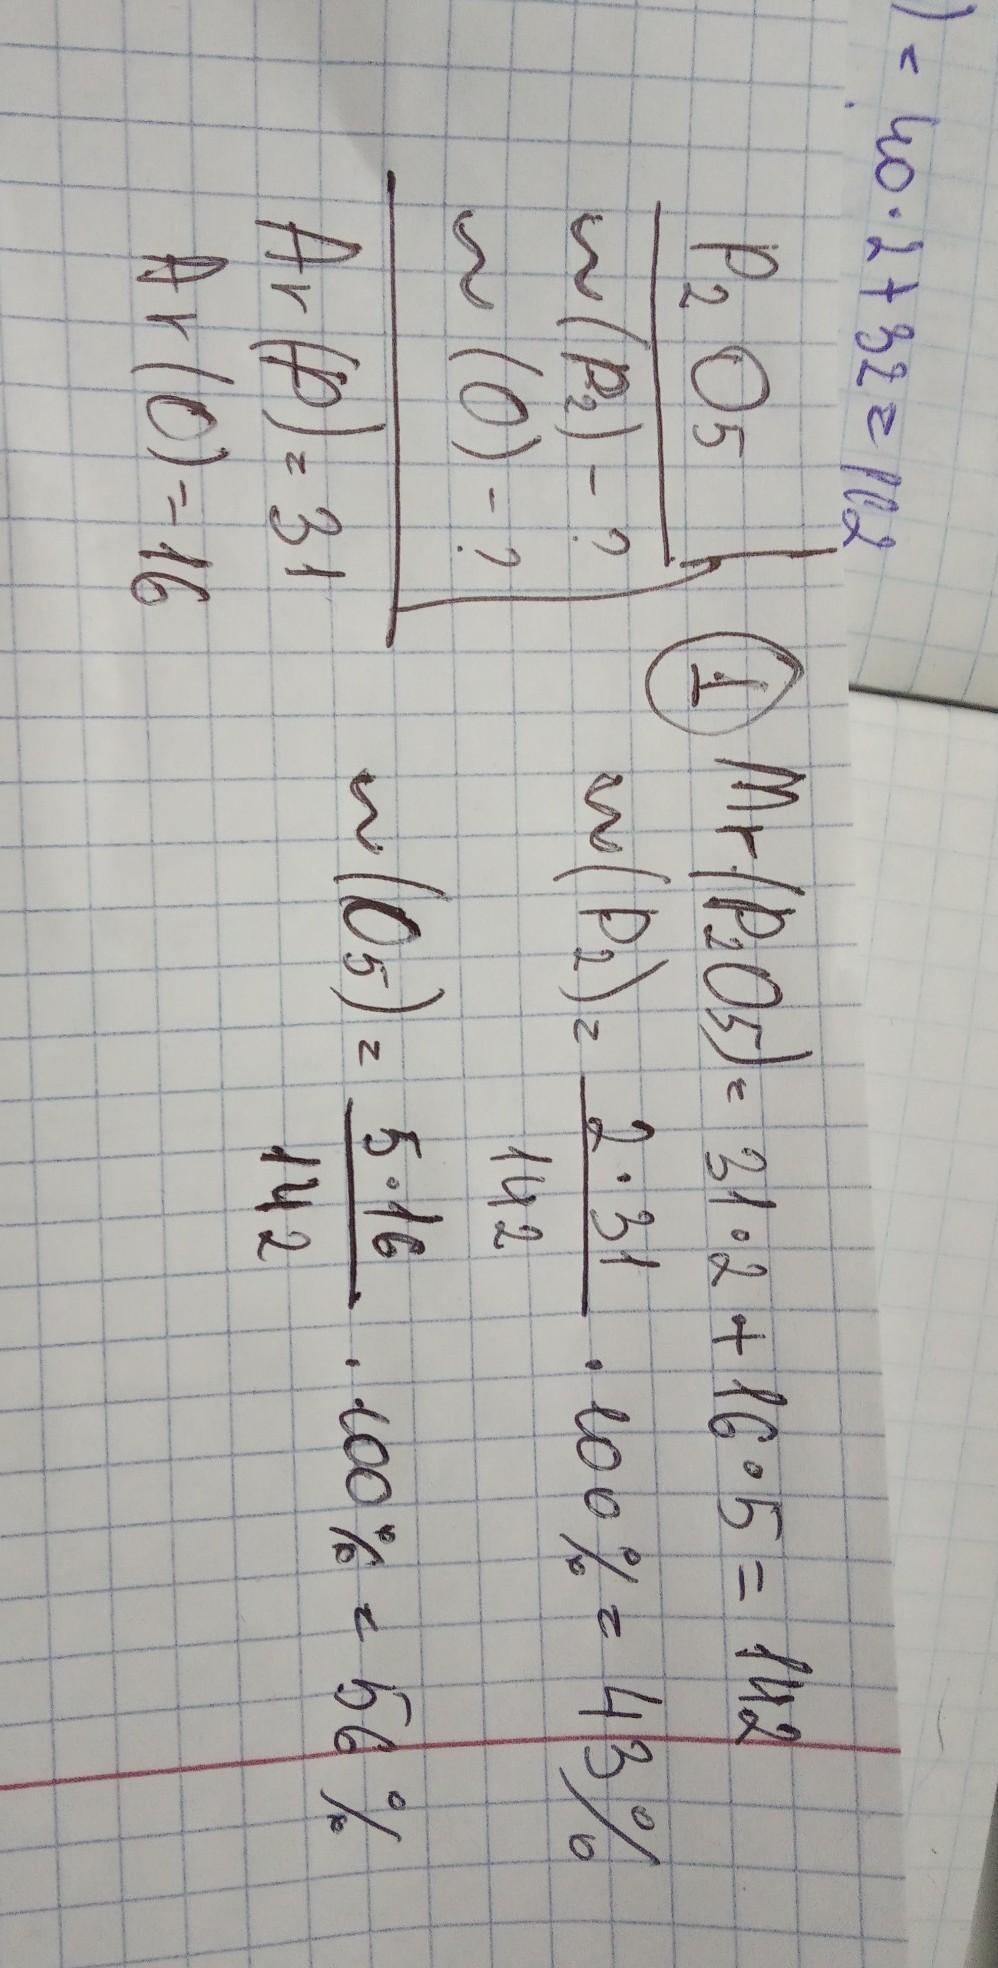 ) = 40·2+32=112
P₂O₅
w(P₂)-?
w(O)-?
Ar(P)=31
Ar(O)=16
① Mr(P₂O₅)=31·2+16·5=142
w(P₂)= 2·31/142 ·100%=43%
w(O₅)= 5·16/142 ·100%=56%